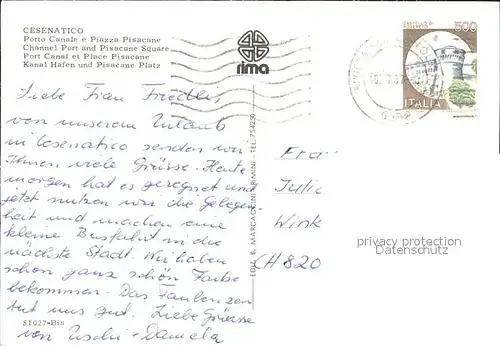 CESENATICO
Porto Canale e Piazza Pisacane
Channel Port and Pisacane Square
Port Canal et Place Pisacane
Kanal Hafen und Pisacane Platz
rima
500
ITALIA
Liebe Frau Friedli,
von unserem Urlaub
in Cesenatico senden wir
Ihnen viele Grüsse. Heute
morgen hat es geregnet und
jetzt nutzen wir die Gelegen-
heit und machen eine
kleine Busfahrt in die
nächste Stadt. Wir haben
schon ganz schön Farbe
bekommen. Das Faulenzen
tut uns gut. Liebe Grüsse
von Uschi + Daniela
51027-Bis
EDIZ. B. MARCACCINI RIMINI - TEL. 754259
Frau
Julie
Wink
CH 820
privacy protection
Datenschutz